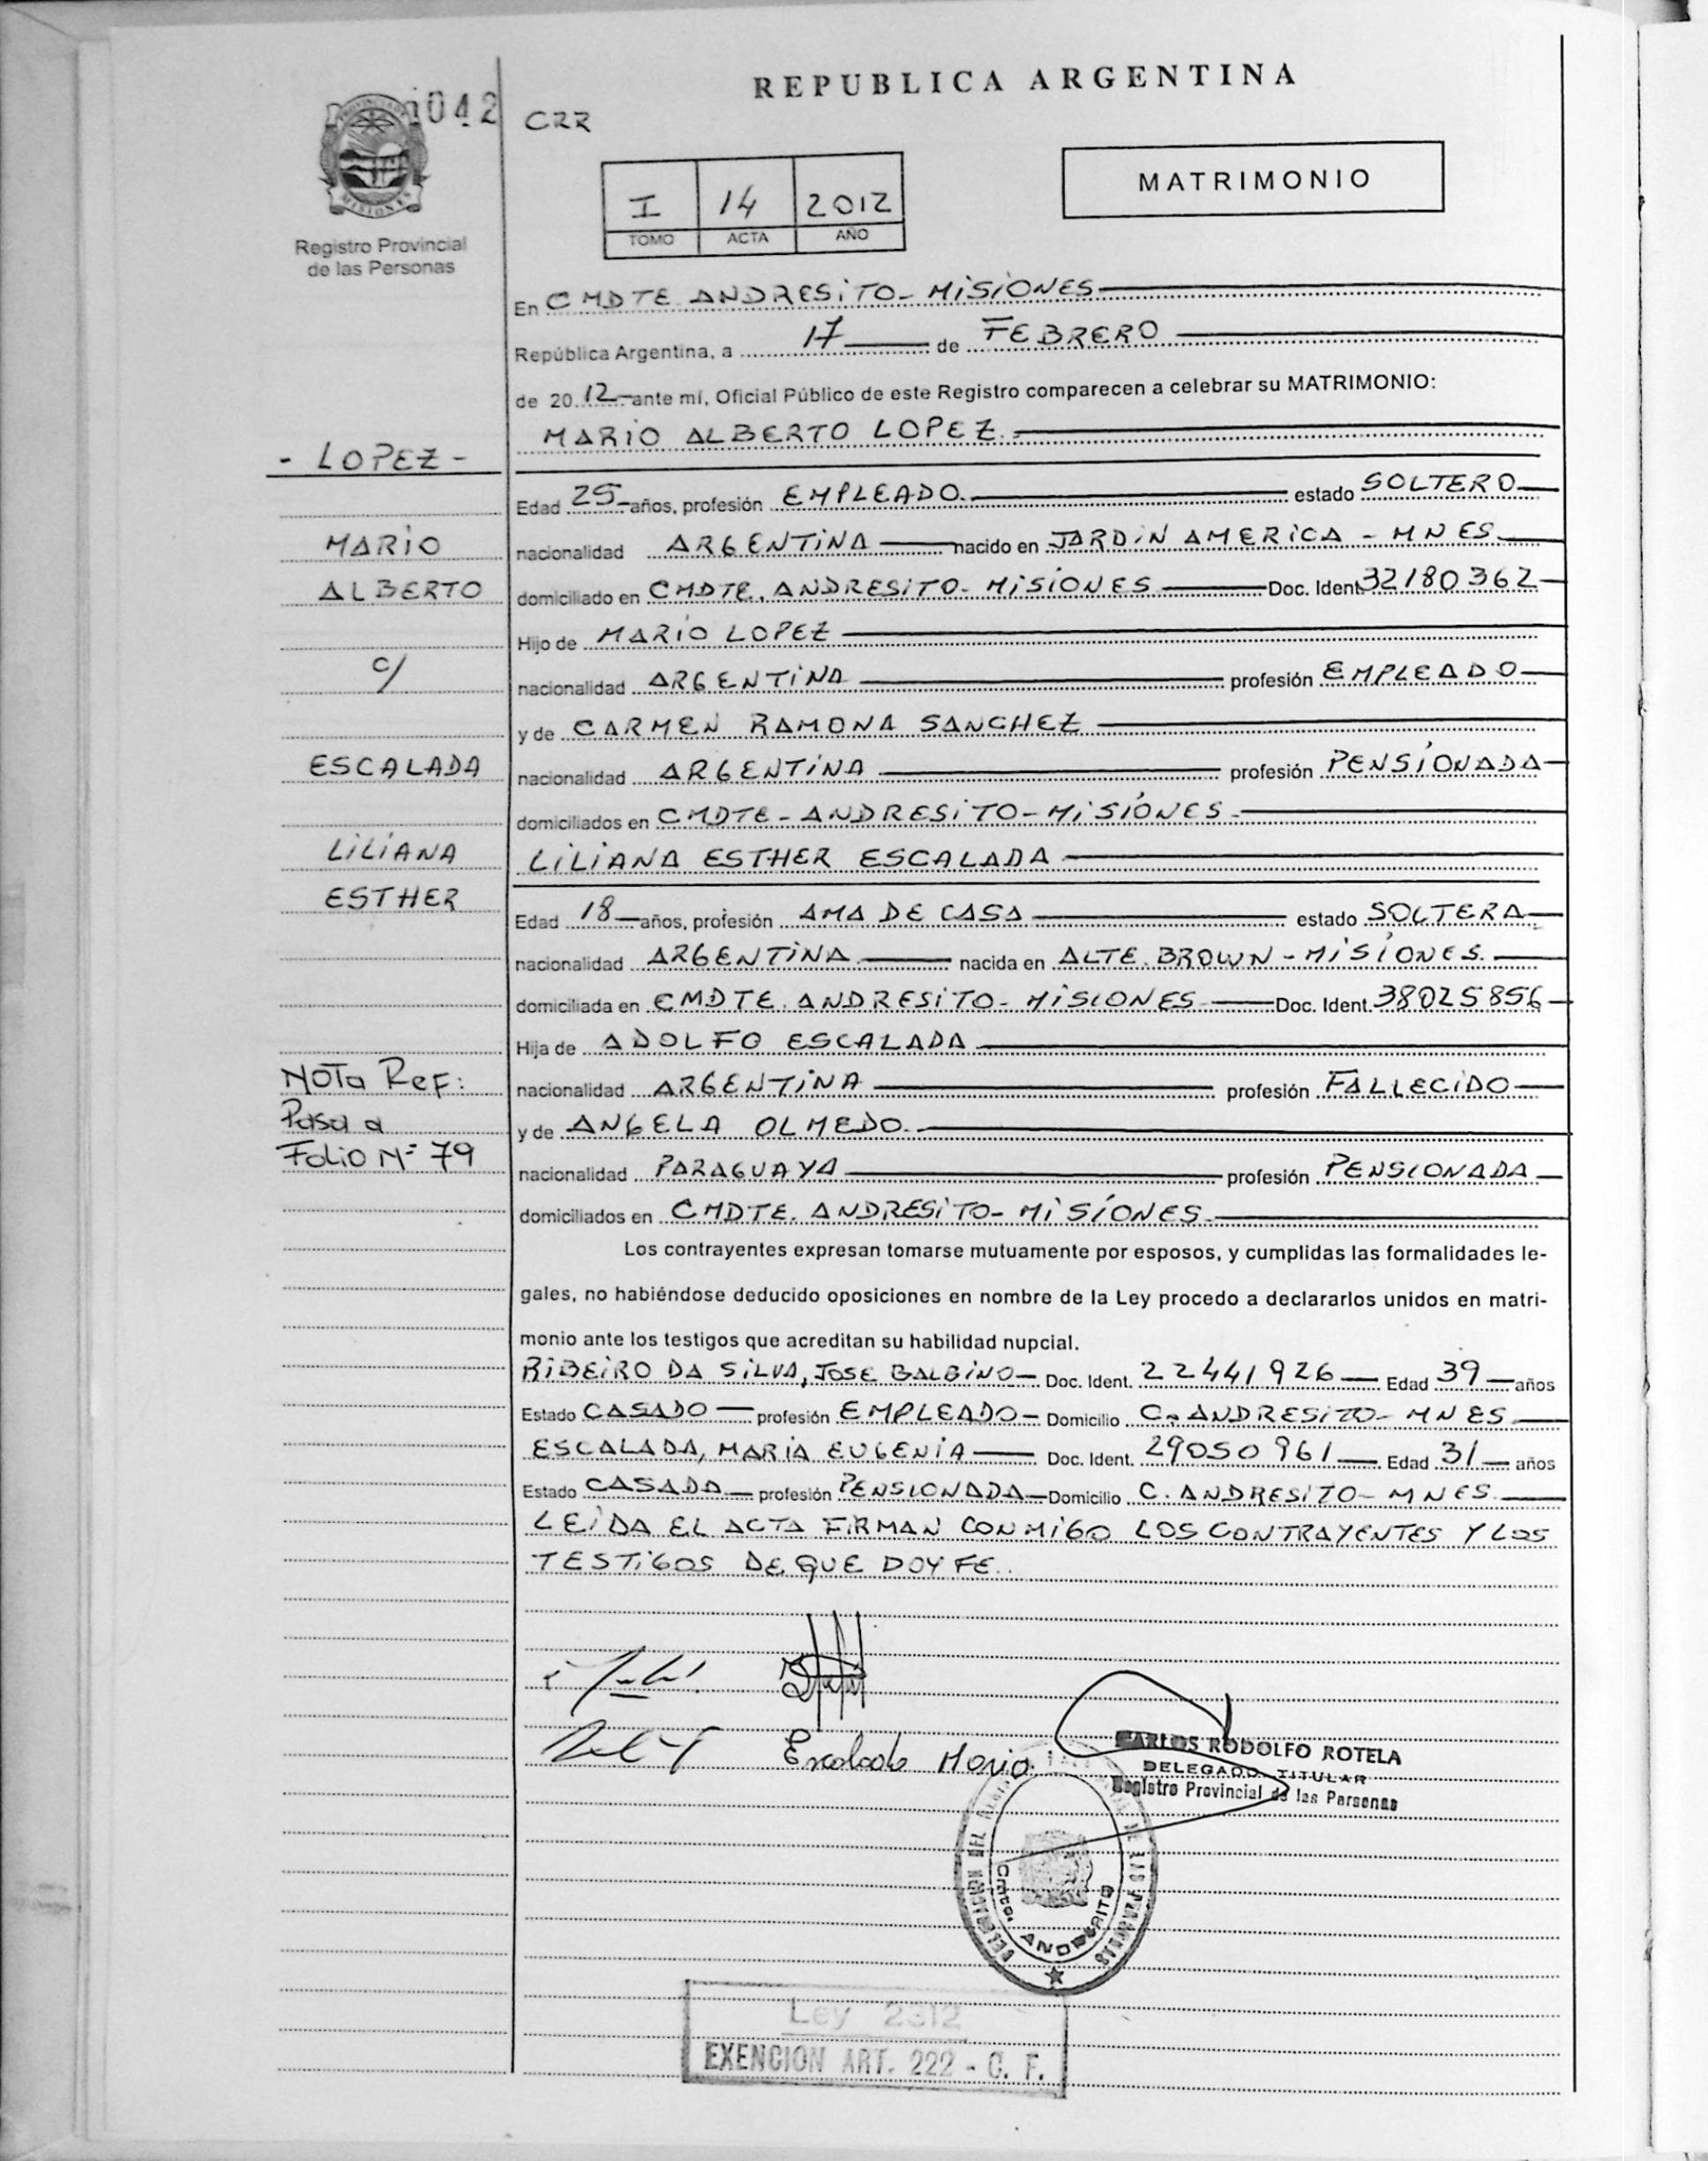 REPUBLICA ARGENTINA
042
CRR
MATRIMONIO
I 14 2012
TOMO ACTA AÑO
MISIONES
Registro Provincial
de las Personas
En CMDTE ANDRESiTO - MiSiONES
República Argentina, a 17 de FEBRERO
de 2012 ante mí, Oficial Público de este Registro comparecen a celebrar su MATRIMONIO:
MARiO ALBERTO LOPEZ.
- LOPEZ -
Edad 25 años, profesión EMPLEADO. estado SOLTERO
MARiO
nacionalidad ARGENTiNA nacido en JARDiN AMERiCA - MNES
ALBERTO
domiciliado en CMDTE. ANDRESiTO - MiSiONES Doc. Ident. 32180362
Hijo de MARiO LOPEZ
c/
nacionalidad ARGENTiNA profesión EMPLEADO
y de CARMEN RAMONA SANCHEZ
ESCALADA
nacionalidad ARGENTiNA profesión PENSiONADA
domiciliados en CMDTE - ANDRESiTO - MiSiONES
LiLiANA
LiLiANA ESTHER ESCALADA
ESTHER
Edad 18 años, profesión AMA DE CASA estado SOLTERA
nacionalidad ARGENTiNA nacida en ALTE. BROWN - MiSiONES.
domiciliada en CMDTE. ANDRESiTO - MiSiONES Doc. Ident. 38025856
Hija de ADOLFO ESCALADA
NOTa Ref:
nacionalidad ARGENTiNA profesión FALLECiDO
Pasa a
y de ANGELA OLMEDO.
Folio Nº 79
nacionalidad PARAGUAYA profesión PENSiONADA
domiciliados en CMDTE. ANDRESiTO - MiSiONES
Los contrayentes expresan tomarse mutuamente por esposos, y cumplidas las formalidades le-
gales, no habiéndose deducido oposiciones en nombre de la Ley procedo a declararlos unidos en matri-
monio ante los testigos que acreditan su habilidad nupcial.
RiBEiRO DA SiLVA, JOSE BALBiNO Doc. Ident. 22441926 Edad 39 años
Estado CASADO profesión EMPLEADO Domicilio C. ANDRESiTO - MNES
ESCALADA, MARiA EUGENiA Doc. Ident. 29050961 Edad 31 años
Estado CASADA profesión PENSiONADA Domicilio C. ANDRESiTO - MNES.
LEiDA EL ACTA FiRMAN CONMiGO LOS CONTRAYENTES Y LOS
TESTiGOS DE QUE DOY FE.
Escalada Maria
CARLOS RODOLFO ROTELA
DELEGADO TITULAR
Registro Provincial de las Personas
DELEGACION DEL REGISTRO PROVINCIAL DE LAS PERSONAS
Cmte. ANDRESITO
Ley 2312
EXENCION ART. 222 - C. F.